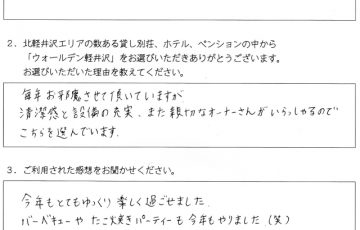 ２．北軽井沢エリアの数ある貸し別荘、ホテル、ペンションの中から
「ウォールデン軽井沢」をお選びいただきありがとうございます。
お選びいただいた理由を教えてください。
毎年お邪魔させて頂いていますが
清潔感と設備の充実、また親切なオーナーさんがいらっしゃるので
こちらを選んでいます.
３．ご利用された感想をお聞かせください。
今年もとてもゆっくり楽しく過ごせました.
バーベキューや たこ焼きパーティーも今年もやりました (笑)